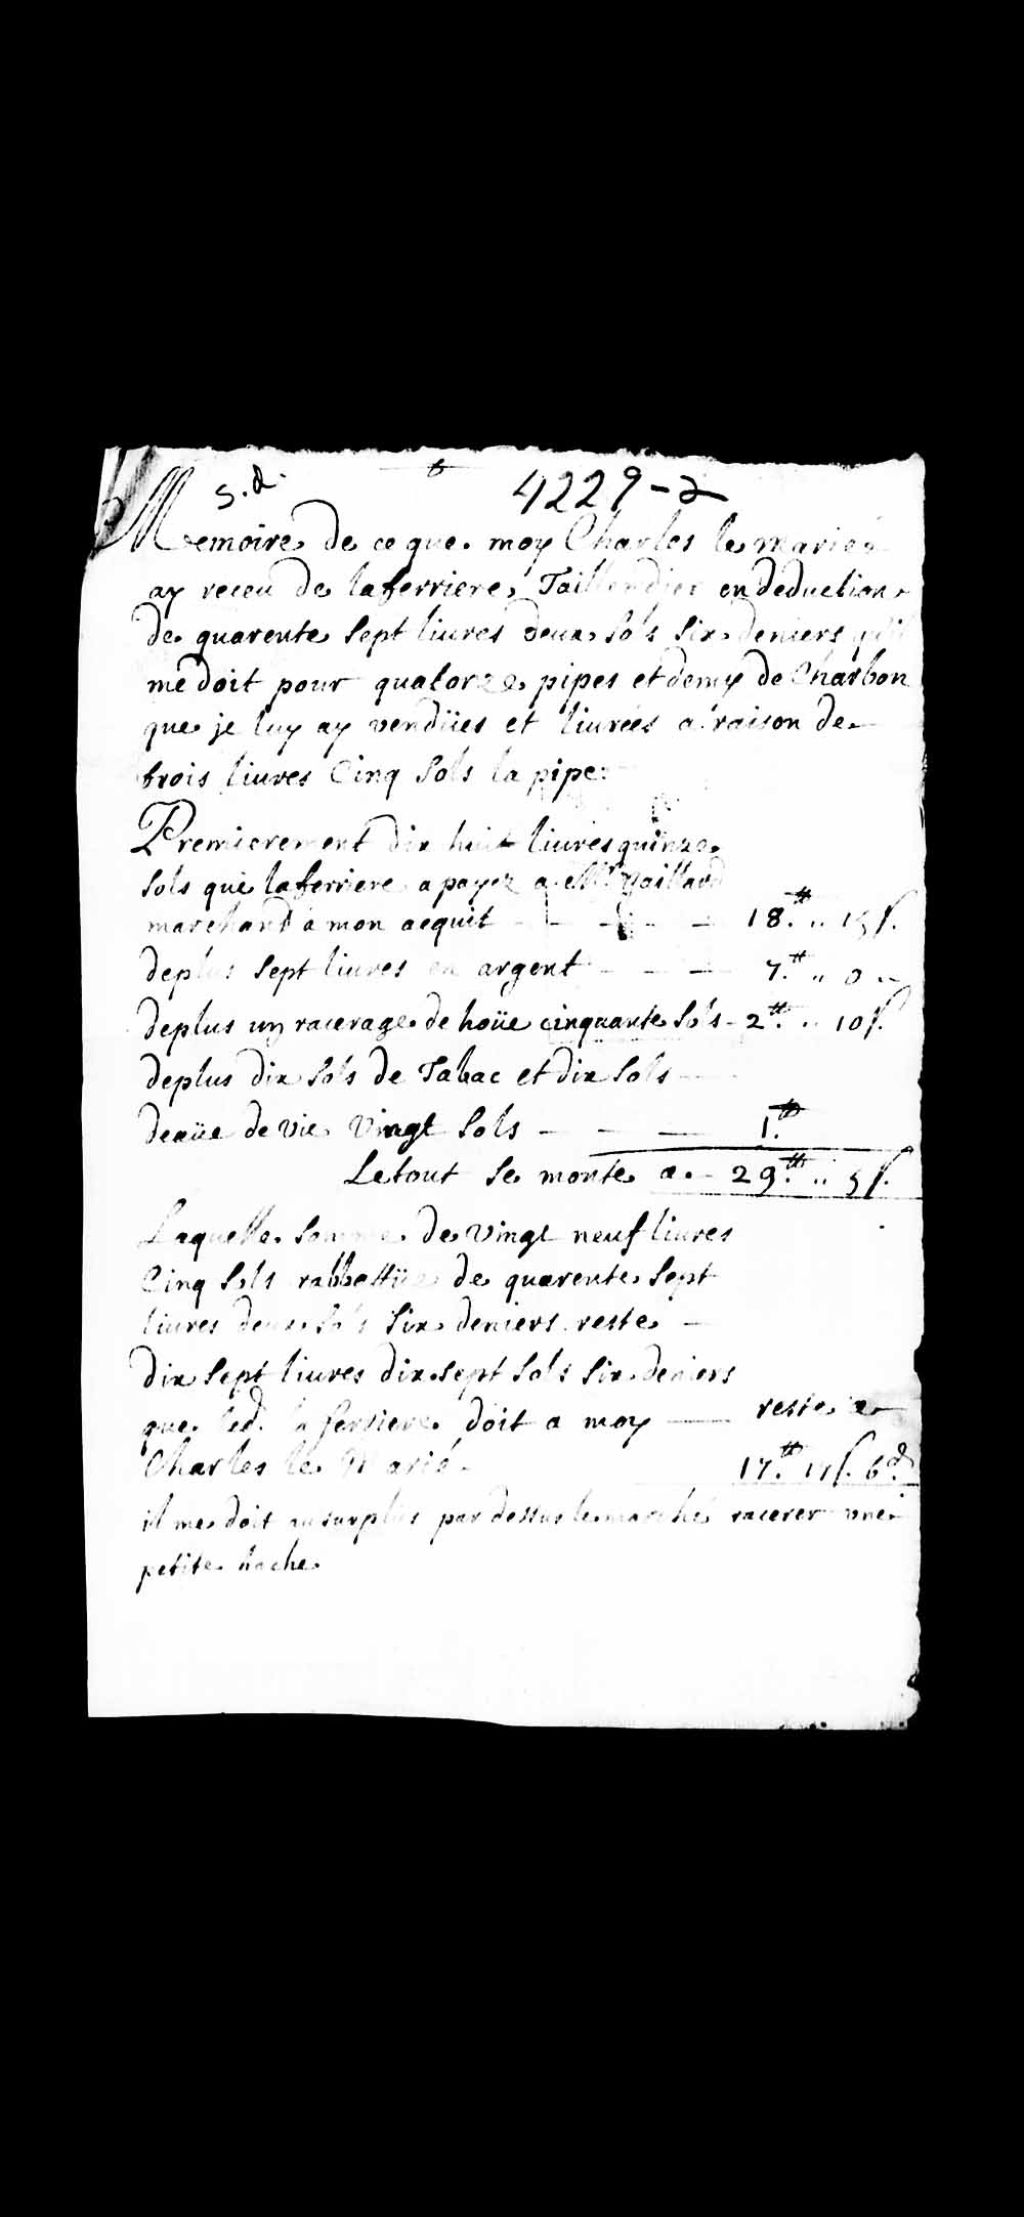 s.d. 4229-2
Memoire de ce que moy Charles le marié
ay receu de laferriere Taillendier en deduction
de quarente sept liures deux sols six deniers
me doit pour quatorze pipes et demy de Charbon
que je luy ay vendües et liurées a raison de
trois liures Cinq sols la pipe
Premierement dix huit liures quinze
sols que laferriere a payez a Mr
marchant a mon acquit 18.tt .. 15 s.
deplus sept liures en argent 7.tt .. 0 ..
deplus un racerage de hoüe cinquante sols 2.tt .. 10 s.
deplus dix sols de Tabac et dix sols
deaüe de vie vingt sols 1.tt
Le tout se monte a 29.tt .. 5 s.
Laquelle somme de vingt neuf liures
Cinq sols rabbattüe de quarente sept
liures deux sols six deniers reste
dix sept liures dix sept sols six deniers
que led. la ferriere doit a moy reste a
Charles le Marié 17.tt 17 s. 6 d.
il me doit au surplus par dessus le marché racerer une
petite hache